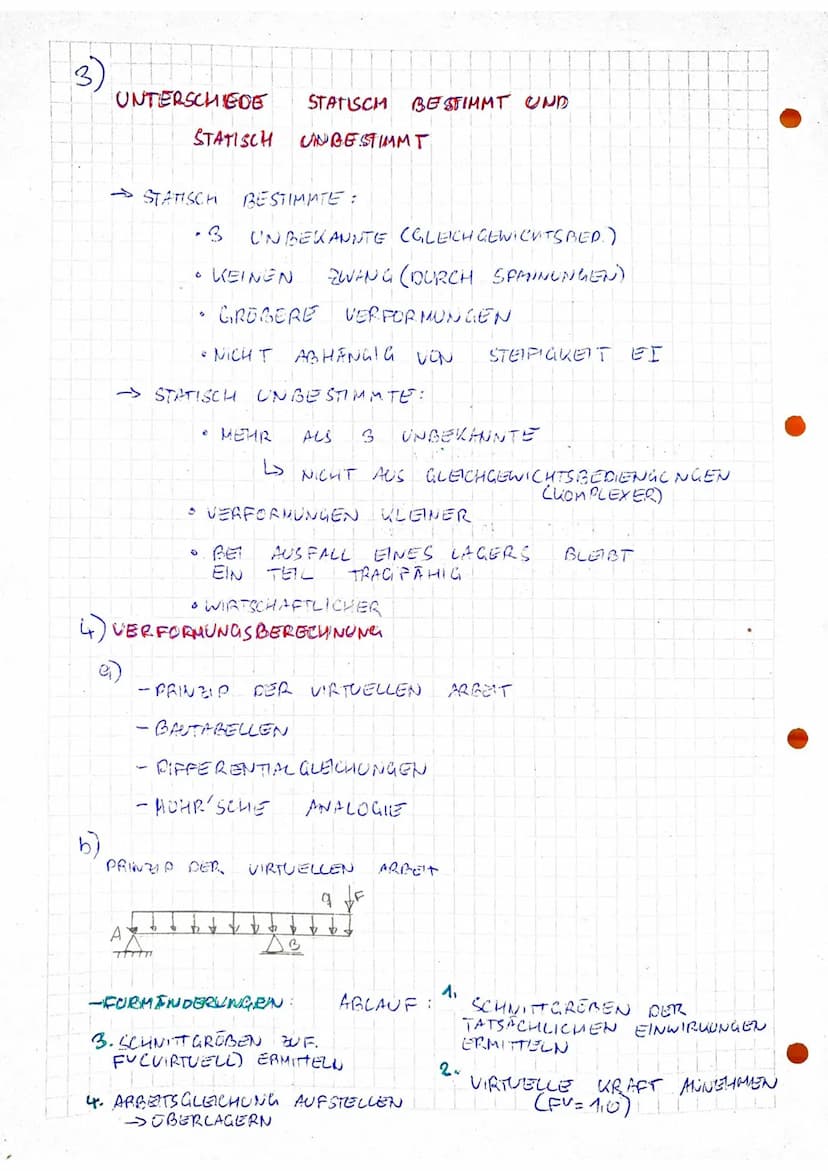 3)
UNTERSCHIEDE STATISCH BESTIMMT UND
STATISCH UNBESTIMMT
→ STATISCH BESTIMMTE:
• 3 UNBEKANNTE (GLEICHGEWICHTSBED.)
• KEINEN ZWANG (DURCH SPANNUNGEN)
• GRÖßERE VERFORMUNGEN
• NICHT ABHÄNGIG VON STEIFIGKEIT EI
→ STATISCH UNBESTIMMTE:
• MEHR ALS 3 UNBEKANNTE
↳ NICHT AUS GLEICHGEWICHTSBEDIENGUNGEN
(KOMPLEXER)
• VERFORMUNGEN KLEINER
• BEI AUSFALL EINES LAGERS BLEIBT
EIN TEIL TRAGFÄHIG
• WIRTSCHAFTLICHER
4) VERFORMUNGSBERECHNUNG
a)
- PRINZIP DER VIRTUELLEN ARBEIT
- BAUTABELLEN
- DIFFERENTIALGLEICHUNGEN
- MOHR'SCHE ANALOGIE
b)
PRINZIP DER VIRTUELLEN ARBEIT
q F
A B
- FORMÄNDERUNGEN: ABLAUF:
1. SCHNITTGRÖßEN DER
TATSÄCHLICHEN EINWIRKUNGEN
ERMITTELN
2. VIRTUELLE KRAFT ANNEHMEN
(FV = 1,0)
3. SCHNITTGRÖßEN ZUF.
FV(VIRTUELL) ERMITTELN
4. ARBEITSGLEICHUNG AUFSTELLEN
→ ÜBERLAGERN